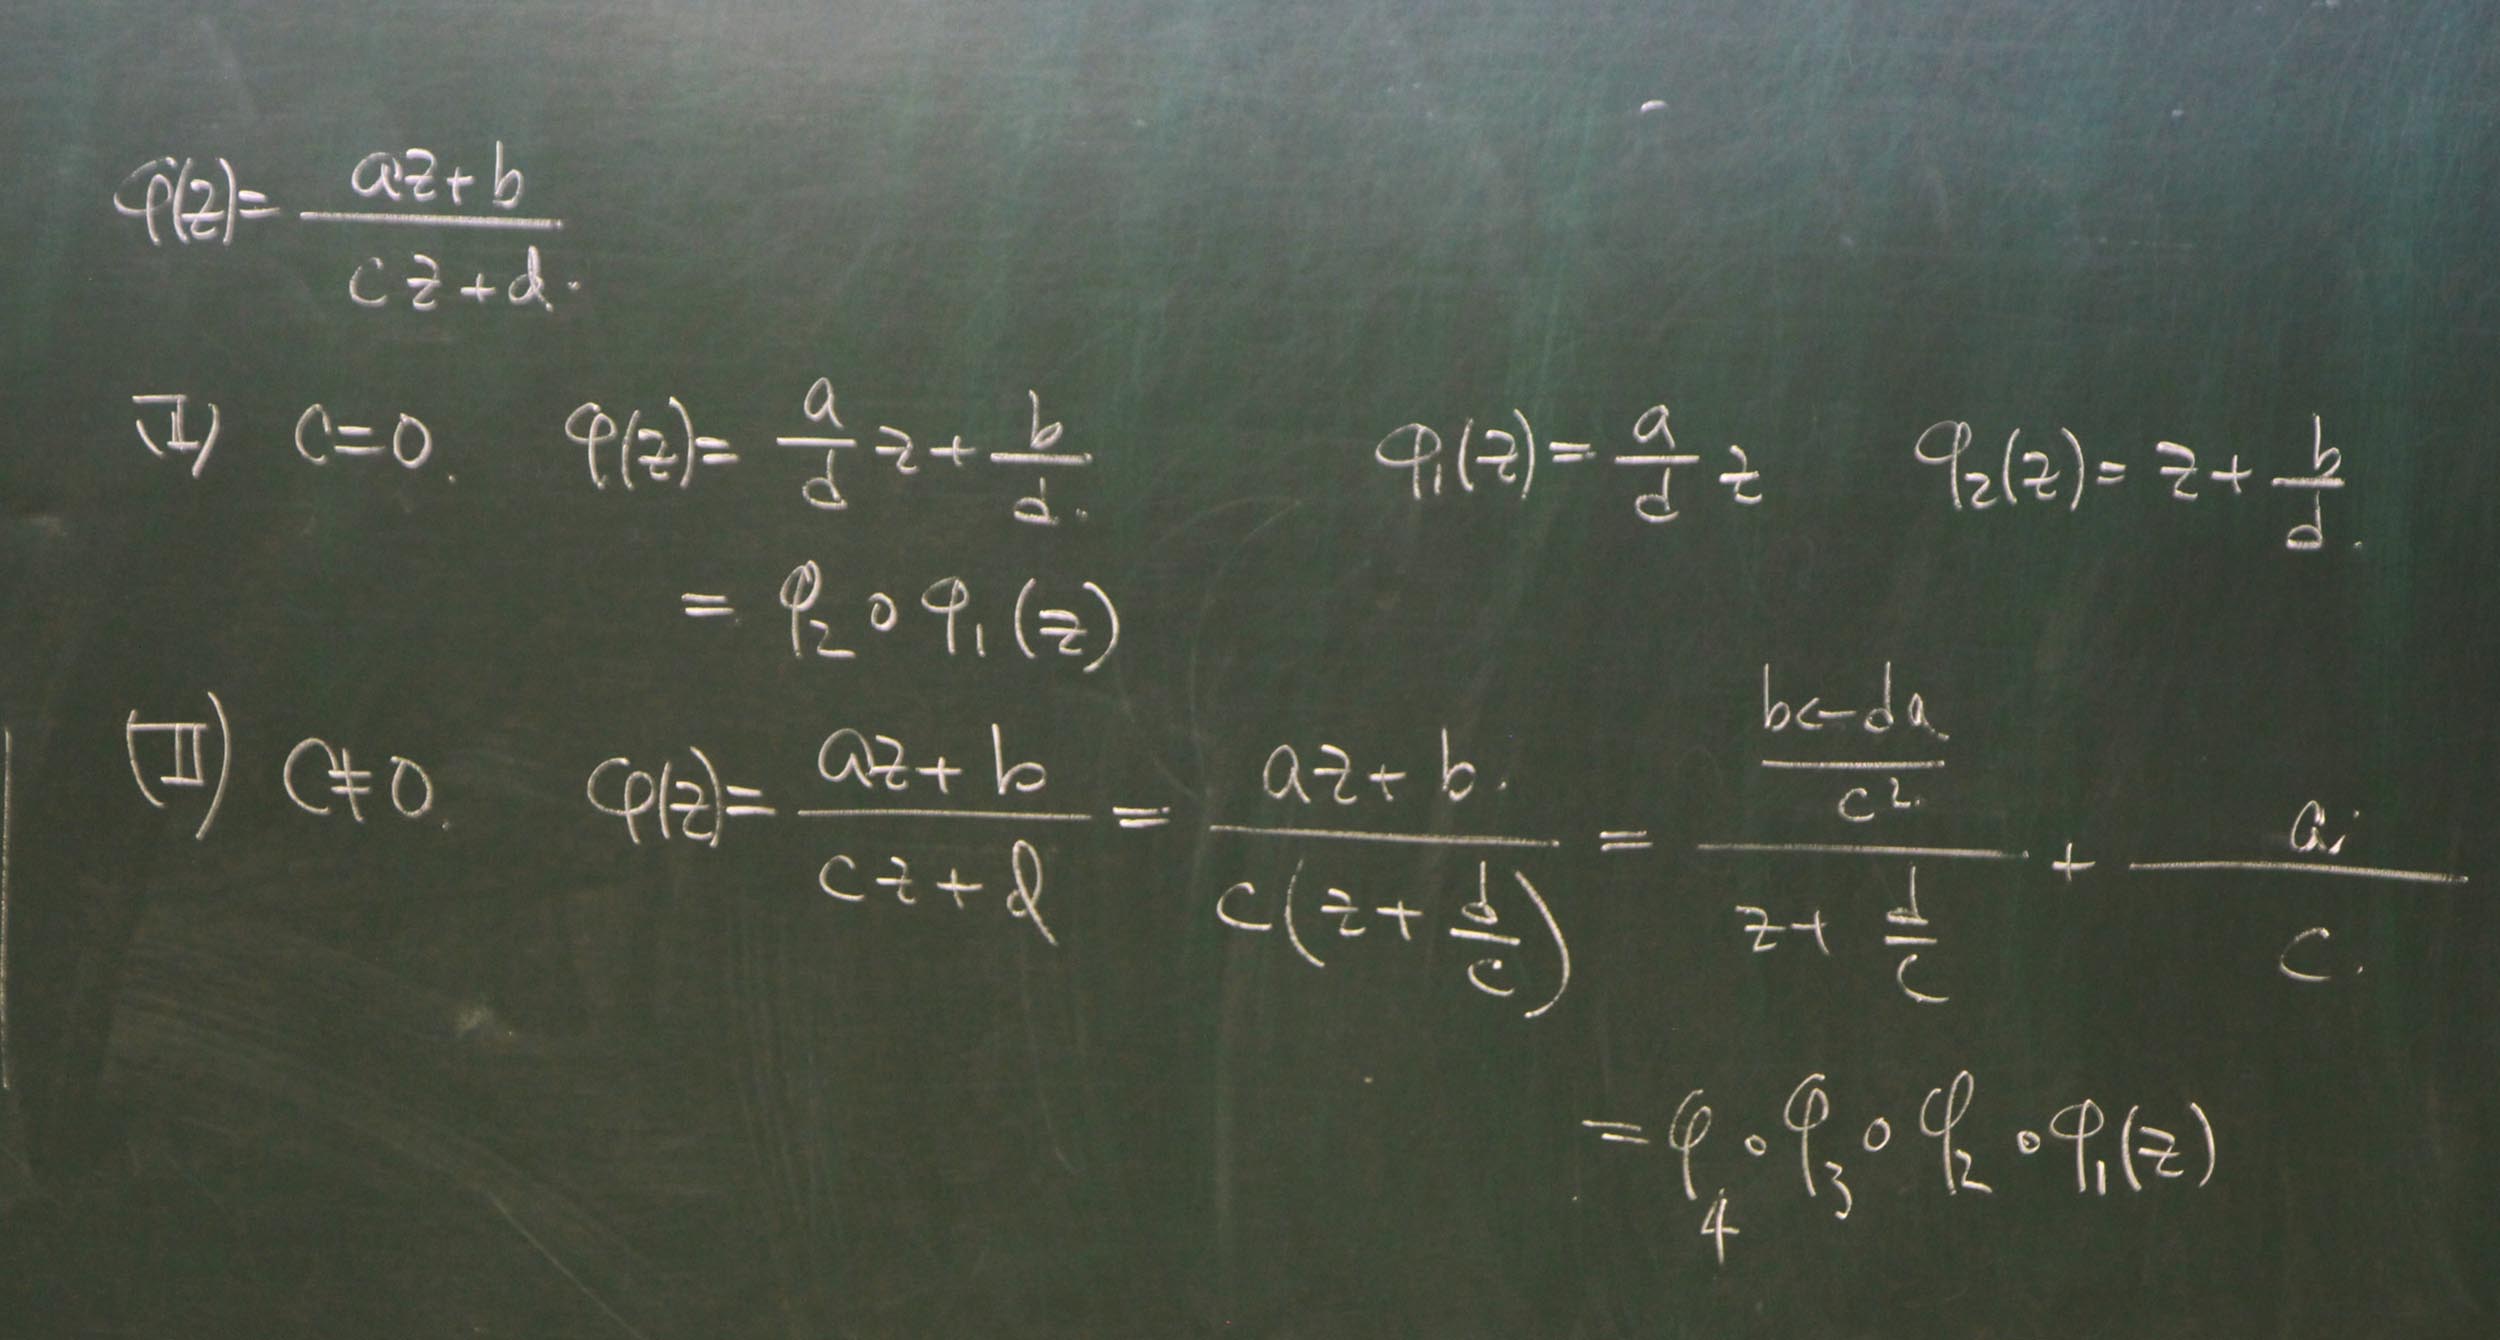 φ(z) = (az+b)/(cz+d).
(I) c=0. φ(z) = a/d z + b/d. φ₁(z) = a/d z φ₂(z) = z + b/d.
= φ₂∘φ₁(z)
(II) c≠0. φ(z) = (az+b)/(cz+d) = (az+b)/(c(z+d/c)) = ((bc-da)/c²)/(z+d/c) + a/c.
= φ₄∘φ₃∘φ₂∘φ₁(z)